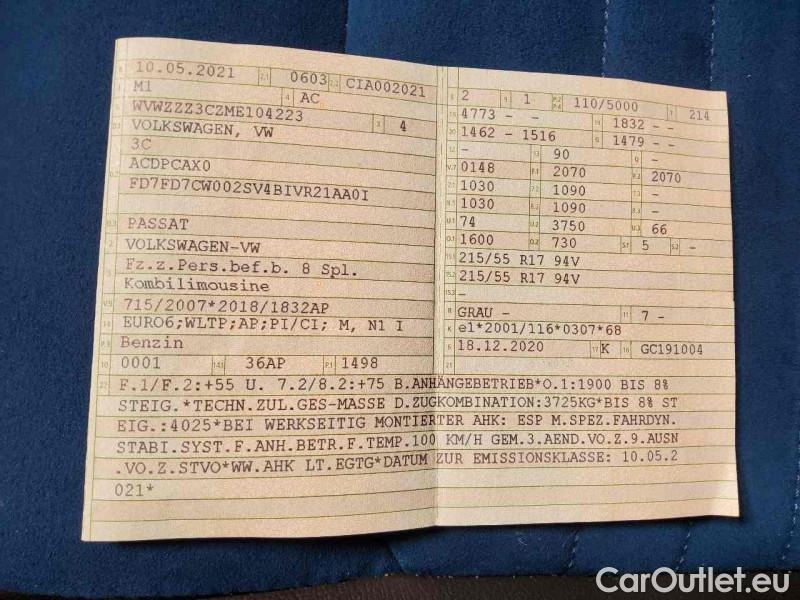 10.05.2021 2.1 0603 2.2 CIA002021
M1 4 AC
WVWZZZ3CZME104223 3 4
VOLKSWAGEN, VW
3C
ACDPCAX0
FD7FD7CW002SV4BIVR21AA0I
D.3 PASSAT
2 VOLKSWAGEN-VW
5 Fz.z.Pers.bef.b. 8 Spl.
Kombilimousine
V.9 715/2007*2018/1832AP
14 EURO6;WLTP;AP;PI/CI; M, N1 I
P.3 Benzin
10 0001 14.1 36AP P.1 1498
L 2 9 1 P.2 P.4 110/5000 T 214
18 4773 - - 19 1832 - -
20 1462 - 1516 G 1479 - -
12 - 13 90 Q -
V.7 0148 F.1 2070 F.2 2070
7.1 1030 7.2 1090 7.3 -
8.1 1030 8.2 1090 8.3 -
U.1 74 U.2 3750 U.3 66
O.1 1600 O.2 730 S.1 5 S.2 -
15.1 215/55 R17 94V
15.2 215/55 R17 94V
15.3 -
R GRAU - 11 7 -
K e1*2001/116*0307*68
6 18.12.2020 17 K 16 GC191004
21
22 F.1/F.2:+55 U. 7.2/8.2:+75 B.ANHÄNGEBETRIEB*O.1:1900 BIS 8%
STEIG.*TECHN.ZUL.GES-MASSE D.ZUGKOMBINATION:3725KG*BIS 8% ST
EIG.:4025*BEI WERKSEITIG MONTIERTER AHK: ESP M.SPEZ.FAHRDYN.
STABI.SYST.F.ANH.BETR.F.TEMP.100 KM/H GEM.3.AEND.VO.Z.9.AUSN
.VO.Z.STVO*WW.AHK LT.EGTG*DATUM ZUR EMISSIONSKLASSE: 10.05.2
021*
CarOutlet.eu